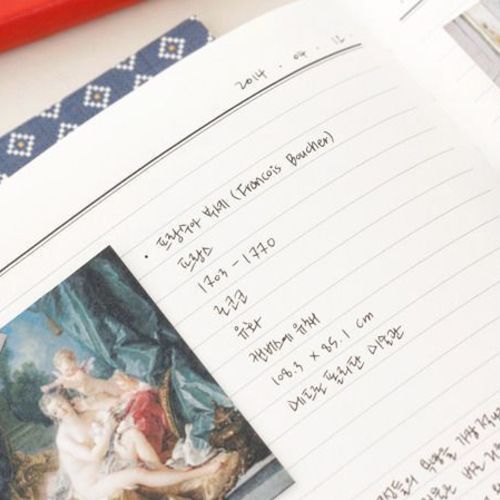 2014. 04. 12.
· 프랑수아 부셰 (Francois Boucher)
프랑스
1703 - 1770
로코코
유화
캔버스에 유채
108.3 x 85.1 cm
메트로폴리탄 미술관